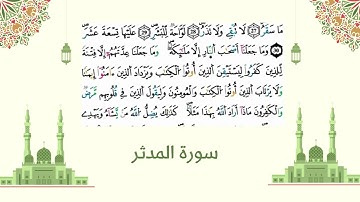 مَا سَقَرُ ۝٢٧ لَا تُبْقِي وَلَا تَذَرُ ۝٢٨ لَوَّاحَةٌ لِّلْبَشَرِ ۝٢٩ عَلَيْهَا تِسْعَةَ عَشَرَ
۝٣٠ وَمَا جَعَلْنَا أَصْحَٰبَ ٱلنَّارِ إِلَّا مَلَٰٓئِكَةً وَمَا جَعَلْنَا عِدَّتَهُمْ إِلَّا فِتْنَةً
لِّلَّذِينَ كَفَرُوا۟ لِيَسْتَيْقِنَ ٱلَّذِينَ أُوتُوا۟ ٱلْكِتَٰبَ وَيَزْدَادَ ٱلَّذِينَ ءَامَنُوٓا۟ إِيمَٰنًا
وَلَا يَرْتَابَ ٱلَّذِينَ أُوتُوا۟ ٱلْكِتَٰبَ وَٱلْمُؤْمِنُونَ وَلِيَقُولَ ٱلَّذِينَ فِي قُلُوبِهِم مَّرَضٌ
وَٱلْكَٰفِرُونَ مَاذَآ أَرَادَ ٱللَّهُ بِهَٰذَا مَثَلًا كَذَٰلِكَ يُضِلُّ ٱللَّهُ مَن يَشَآءُ وَيَهْدِي
سورة المدثر